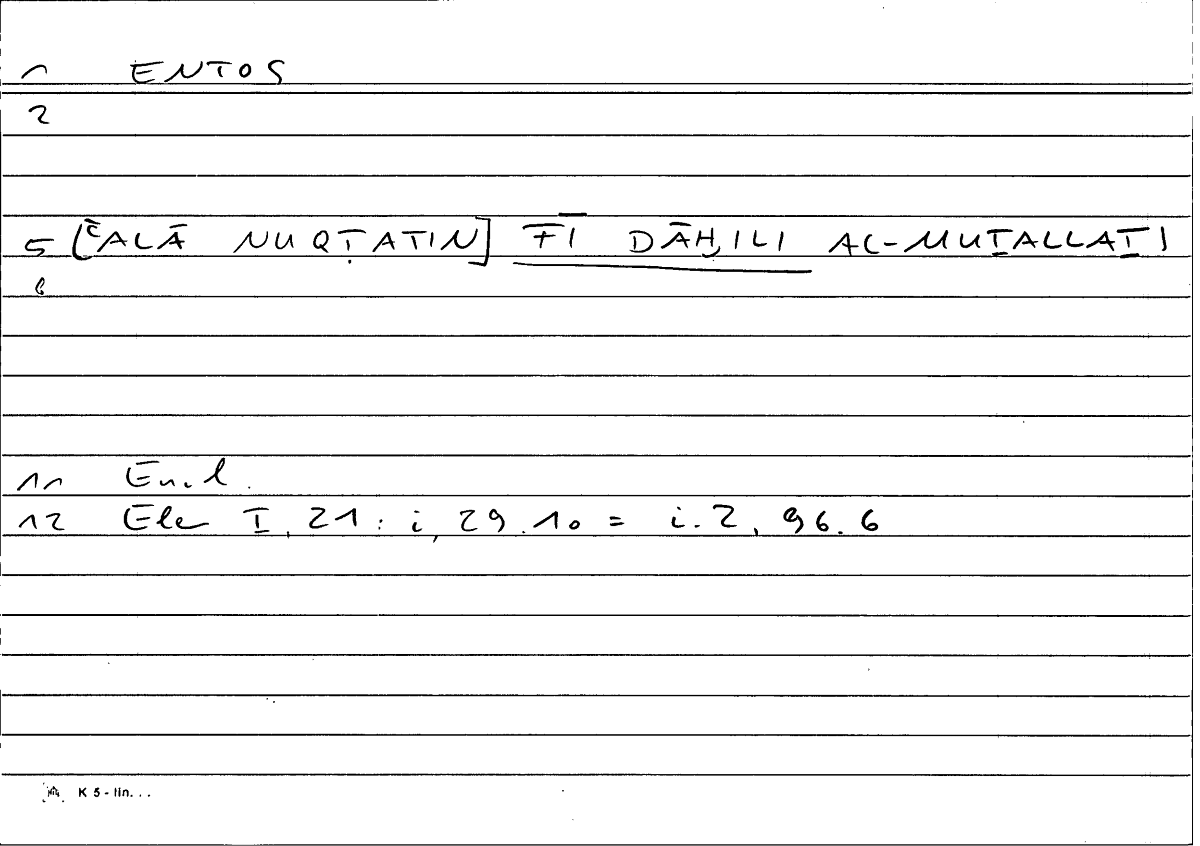 1 ENTOS
2
5 [ʿALĀ NUQṬATIN] FĪ DĀḪILI AL-MUṮALLAṮI
6
11 Eucl.
12 Ele I, 21 : i, 29.10 = i.2, 96.6
K 5 - lin. . .